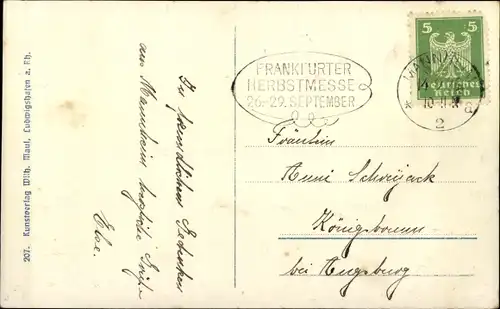 In freundlichem Gedenken
aus Mannheim herzliche Grüße
Else.
207. Kunstverlag Wilh. Maul, Ludwigshafen a. Rh.
FRANKFURTER
HERBSTMESSE
26-29. SEPTEMBER
5 5
Deutsches
Reich
2
Fräulein
Anni
Königsbrunn
bei Augsburg